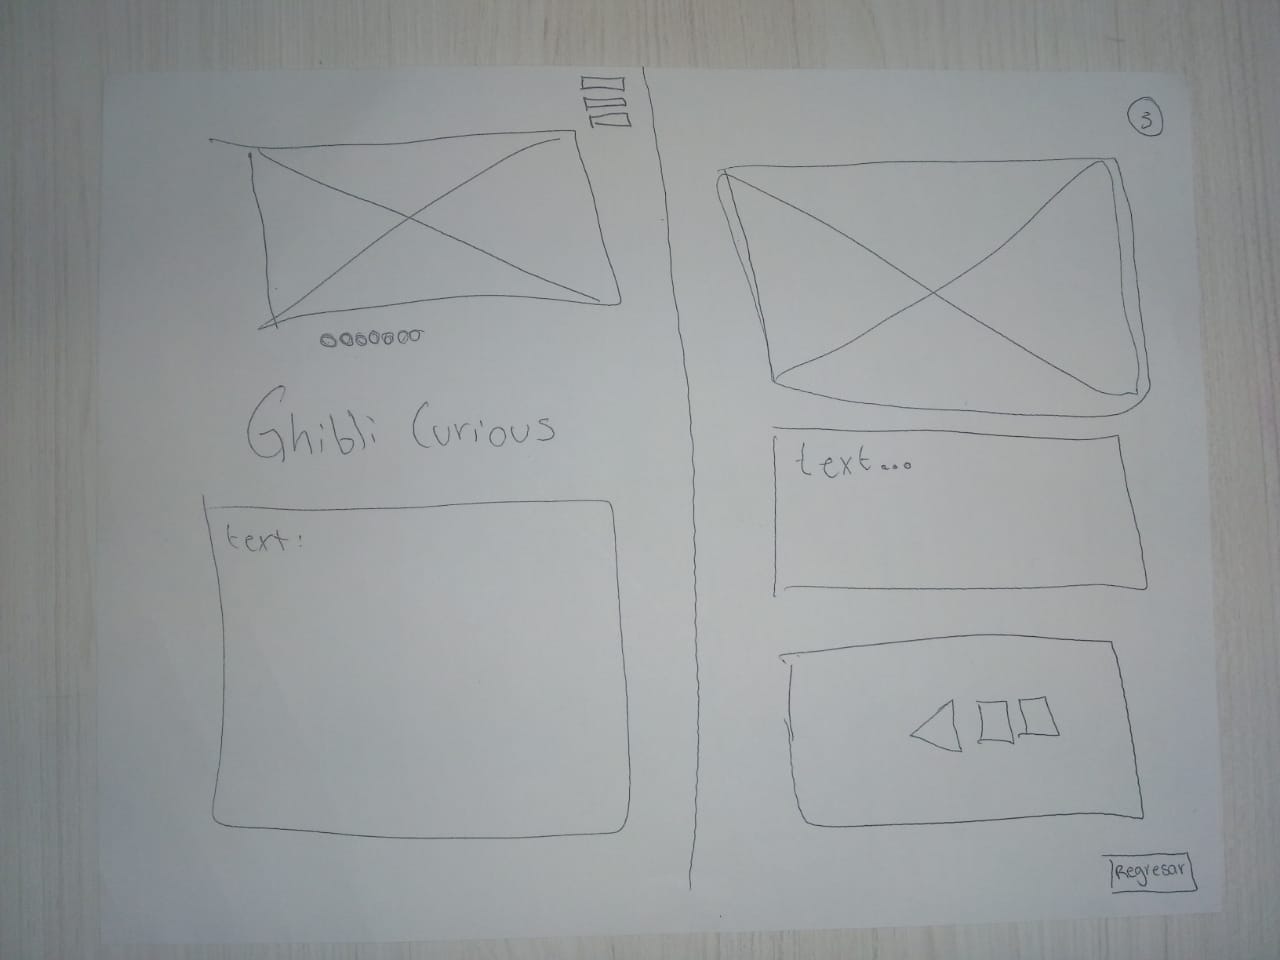 Ghibli Curious
text:
3
text...
Regresar